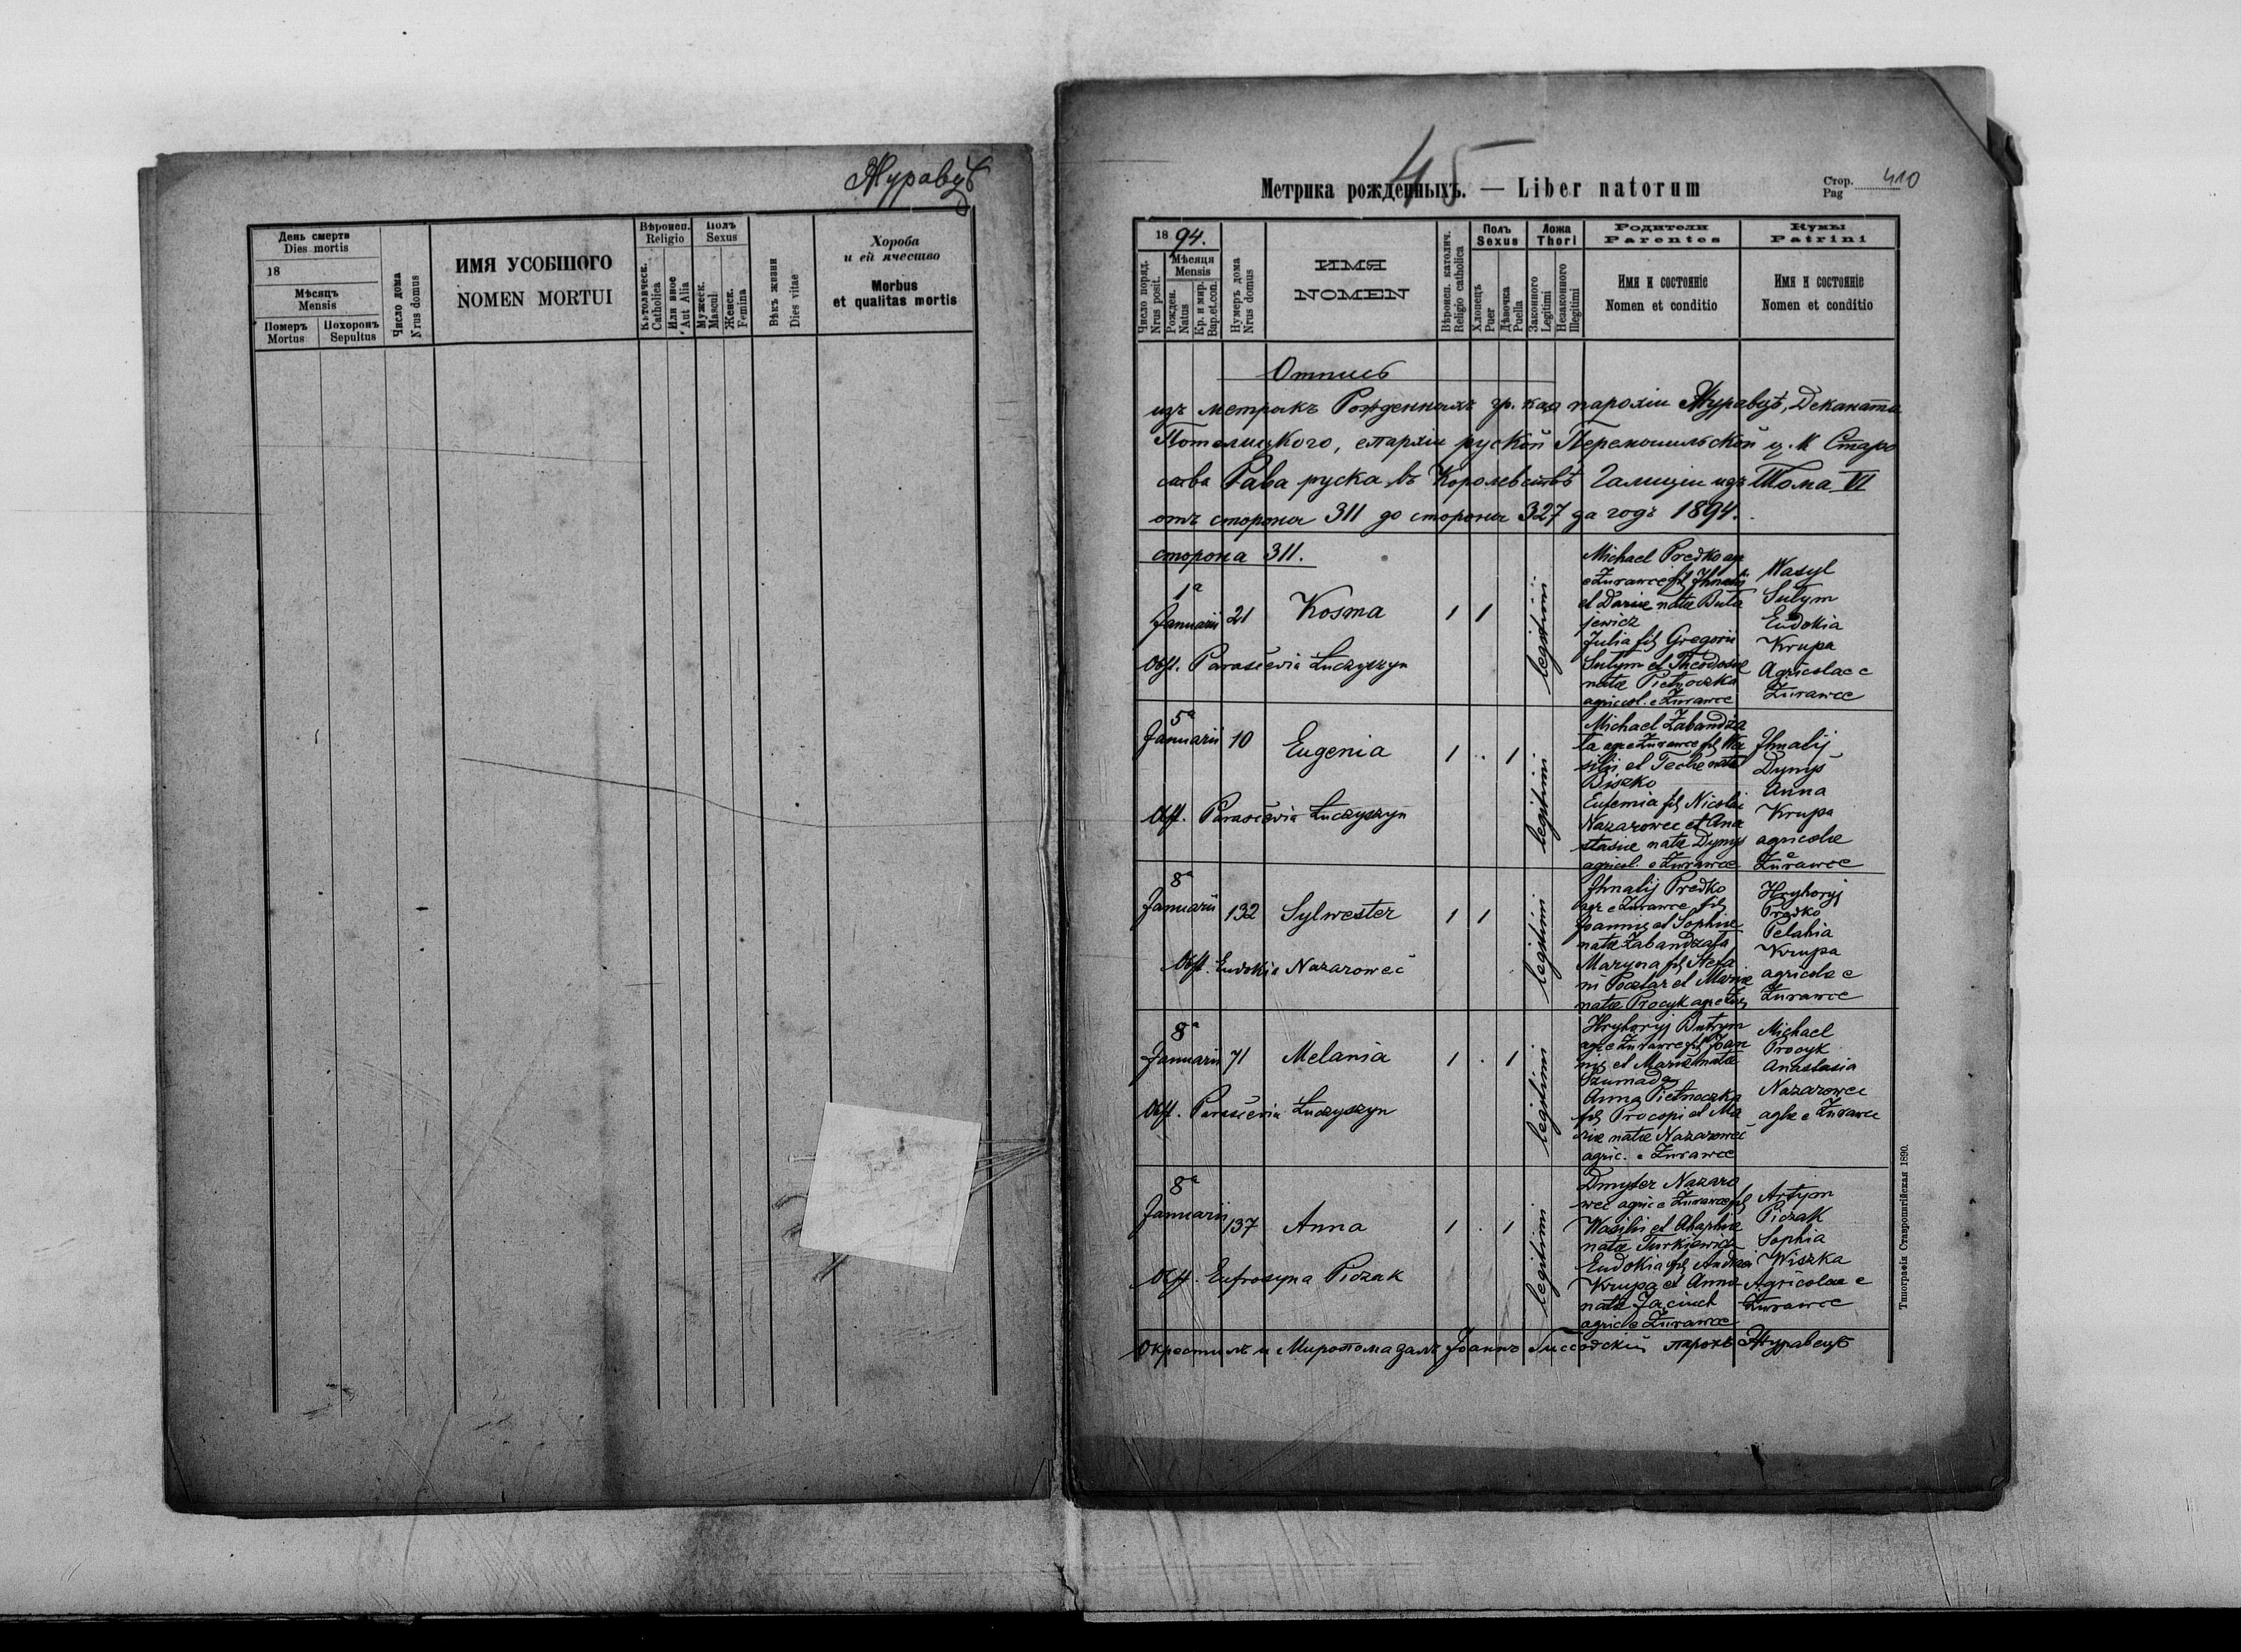 Журавцѣ
День смерти
Dies mortis
18
Мѣсяцъ
Mensis
Померъ
Mortus
Похоронъ
Sepultus
Число дома
Nrus domus
ИМЯ УСОБШОГО
NOMEN MORTUI
Вѣроисп.
Religio
Католическ.
Catholica
Или иное
Aut Alia
Полъ
Sexus
Мужеск.
Mascul.
Женск.
Femina
Вѣкъ жизни
Dies vitae
Хороба
и ей ячество
Morbus
et qualitas mortis
45
Метрика рожденныхъ. — Liber natorum
Стор.
Pag
410
18 94.
Число поряд.
Nrus posit.
Мѣсяця
Mensis
Рожден.
Natus
Кр. и мир.
Bap.et.con.
Нумеръ дома
Nrus domus
ИМЯ
NOMEN
Вѣроисп. католич.
Religio catholica
Полъ
Sexus
Хлопецъ
Puer
Дѣвочка
Puella
Ложа
Thori
Законного
Legitimi
Незаконного
Illegitimi
Родители
Parentes
Имя и состояніе
Nomen et conditio
Кумы
Patrini
Имя и состояніе
Nomen et conditio
Отпись
изъ метрикъ Рожденныхъ гр. кат парохіи Журавцѣ, Деканата
Потелицкого, епархіи руской Перемышльской ц. К Старо
ства Рава руска въ Королевствѣ Галиціи изъ Тома VI
отъ стороны 311 до стороны 327 за годъ 1894.
сторона 311.
1ª
Januarii 21 Kosma 1 1
legitimi
Obst. Parascevia Łuczyszyn
Michael Predko agr
e Żurawce fil Ihnatij
et Dariæ natæ Buta
jewicz
Julia fil Gregorii
Sutym et Theodosiæ
natæ Pietnoczka
agricol. e Żurawce
Wasyl
Sutym
Eudokia
Krupa
Agricolae e
Żurawce
5ª
Januarii 10 Eugenia 1 . 1
legitimi
Obst. Parascevia Łuczyszyn
Michael Żabandża
ła agr e Żurawce fil Wa
silij et Teclæ natæ
Biszko
Eufemia fil Nicolai
Nazarowec et Ana
stasiæ natæ Dynys
agricol. e Żurawce
Ihnatij
Dynys
Anna
Krupa
agricolæ
e
Żurawce
8ª
Januarii 132 Sylwester 1 1
legitimi
Obst. Eudokia Nazarowec
Ihnatij Predko
agr e Żurawce fil
Joannis et Sophiæ
natæ Żabandżała
Maryna fil Stefa
ni Pocztar et Mariæ
natæ Procyk agr e Żur
Hryhoryj
Predko
Pelahia
Krupa
agricolæ e
Żurawce
8ª
Januarii 71 Melania 1 . 1
legitimi
Obst. Parascevia Łuczyszyn
Hryhoryj Butryn
agr e Żurawce fil Joan
nis et Mariæ natæ
Szumada
Anna Pietnoczka
fil Procopi et Ma
riæ natæ Nazarowec
agric. e Żurawce
Michael
Procyk
Anastasia
Nazarowec
aglæ e Żurawce
8ª
Januarii 137 Anna 1 . 1
legitimi
Obst. Eufrosyna Pidzak
Dmyter Nazaro
wec agric e Żurawce fil
Wasilii et Ahaphiæ
natæ Turkiewicz
Eudokia fil Andreæ
Krupa et Annæ
natæ Jacinch
agricl e Żurawce
Artym
Pidzak
Sophia
Wiszka
Agricolae e
Żurawce
Окрестилъ и Миропомазалъ Іоаннъ парохъ Журавецъ
Типографія Ставропигійская 1890.